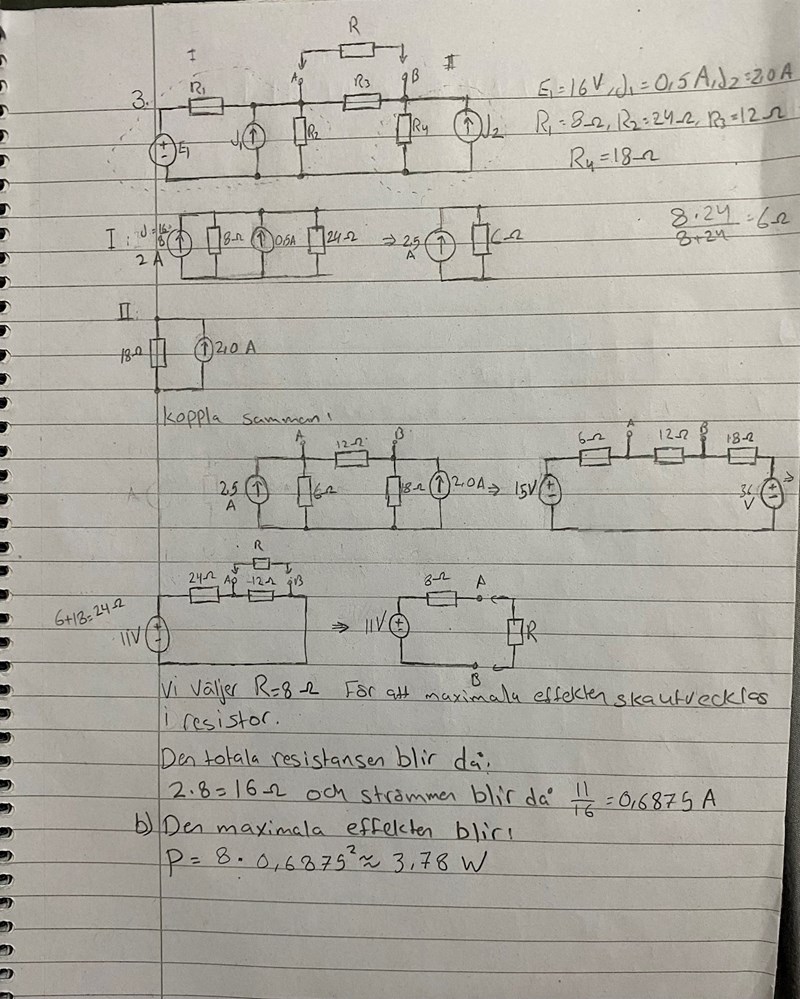 R
I
A
B
II
3.
R₁
R₃
E₁
J₁
R₂
R₄
J₂
E₁=16V, J₁=0,5A, J₂=2.0A
R₁=8Ω, R₂=24Ω, R₃=12Ω
R₄=18Ω
I:
2 A
8Ω
0.5A
24Ω
⇒
2.5 A
6Ω
8·24/8+24=6Ω
II:
18Ω
2.0 A
Koppla samman:
A
12Ω
B
2.5 A
6Ω
18Ω
2.0A
⇒
6Ω
A
12Ω
B
18Ω
15V
36 V
⇒
R
24Ω
A
12Ω
B
6+18=24Ω
11V
⇒
8Ω
A
11V
R
B
Vi väljer R=8Ω För att maximala effekten ska utvecklas
i resistor.
Den totala resistansen blir då:
2·8=16Ω och strömmen blir då 11/16=0,6875 A
b) Den maximala effekten blir:
P= 8· 0,6875²≈ 3,78 W